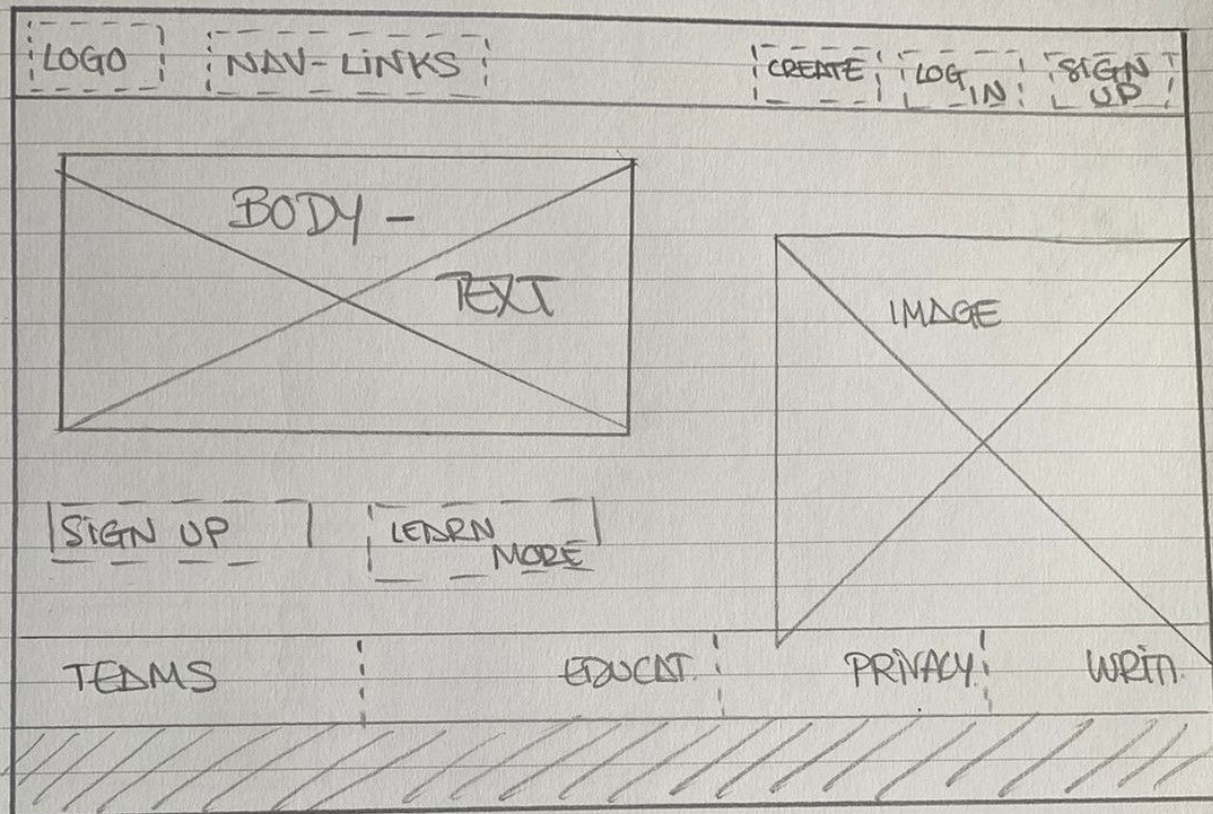 LOGO NAV-LINKS CREATE LOG IN SIGN UP
BODY -
TEXT
IMAGE
SIGN UP LEARN MORE
TEAMS EDUCAT. PRIVACY WRITI.